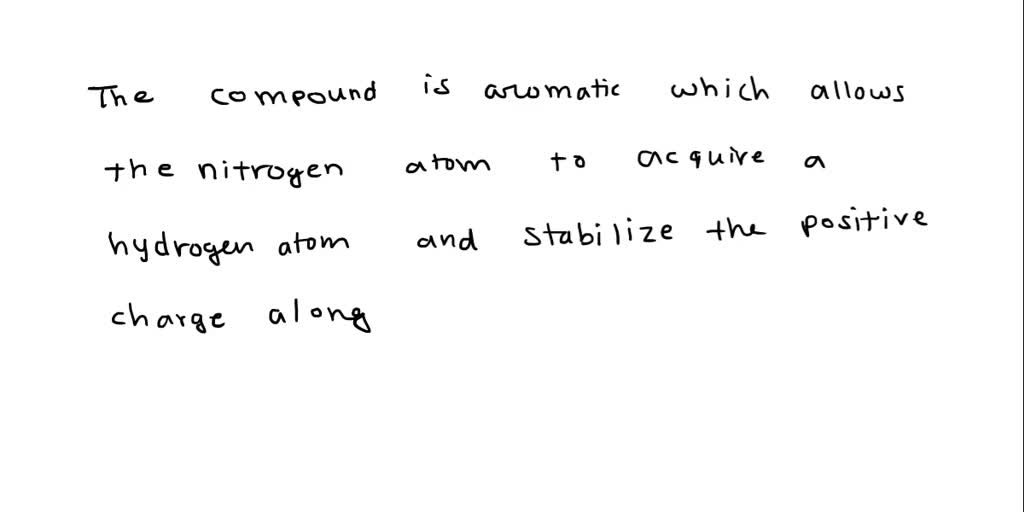 The compound is aromatic which allows
the nitrogen atom to acquire a
hydrogen atom and stabilize the positive
charge along